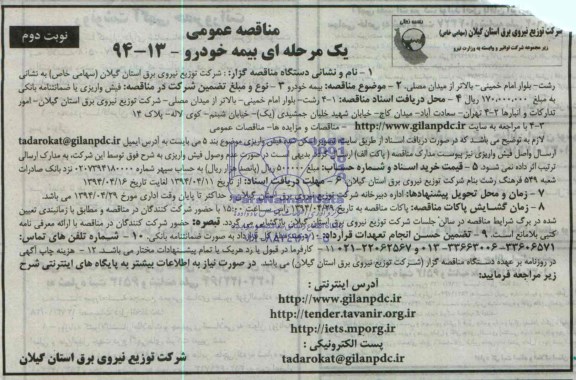 بسمه تعالی
شرکت توزیع نیروی برق استان گیلان (سهامی خاص)
زیر مجموعه شرکت توانیر و وابسته به وزارت نیرو
مناقصه عمومی
یک مرحله ای بیمه خودرو - ۱۳-۹۴
نوبت دوم
۱- نام و نشانی دستگاه مناقصه گزار: شرکت توزیع نیروی برق استان گیلان (سهامی خاص) به نشانی
رشت- بلوار امام خمینی- بالاتر از میدان مصلی. ۲- موضوع مناقصه: بیمه خودرو ۳- نوع و مبلغ تضمین شرکت در مناقصه: فیش واریزی یا ضمانتنامه بانکی
به مبلغ ۱۷۰.۰۰۰.۰۰۰ ریال ۴- محل دریافت اسناد مناقصه: ۱-۴ رشت- بلوار امام خمینی- بالاتر از میدان مصلی- شرکت توزیع نیروی برق استان گیلان- امور
تدارکات و انبارها ۲-۴ تهران- سعادت آباد- میدان کاج- خیابان شهید خلیان جمشیدی (یک)- خیابان شبنم- کوی لاله- پلاک ۱۴
۳-۴ با مراجعه به سایت http://www.gilanpdc.ir - مناقصات و مزایده ها- مناقصات عمومی
لازم به توضیح می باشد که در صورت دریافت اسناد از طریق سایت تصویر فیش واریزی موضوع بند ۵ می بایست به آدرس ایمیل tadarokat@gilanpdc.ir
ارسال و اصل فیش واریزی نیز پیوست مدارک مناقصه (پاکت الف) ارسال گردد. بدیهی است در صورت عدم وصول فیش واریزی به شرح فوق توسط این شرکت، به مدارک ارسالی
ترتیب اثر داده نمی شود. ۵- قیمت خرید اسناد و شماره حساب: مبلغ ۵۰۰.۰۰۰ ریال (پانصد هزار ریال) به حساب سپهر شماره نزد بانک صادرات
شعبه ۵۴۹ فرهنگ رشت بنام شرکت توزیع نیروی برق استان گیلان ۶- مهلت دریافت اسناد: از تاریخ ۱۳۹۴/۰۴/۱۱ لغایت تاریخ ۱۳۹۴/۰۴/۱۶
۷- زمان و محل تحویل پیشنهادها: اداره دبیرخانه شرکت توزیع نیروی برق استان گیلان حداکثر تا پایان وقت اداری مورخ ۱۳۹۴/۰۴/۲۹ می باشد.
۸- زمان گشایش پاکات مناقصه: پاکات مناقصه به تاریخ راس ساعت با حضور شرکت کنندگان در مناقصه و مطابق با زمانبندی تعیین
شده در برگ شرایط مناقصه در سالن جلسات شرکت توزیع نیروی برق استان گیلان بازگشایی می گردد. تبصره: حضور شرکت کنندگان در مناقصه با ارائه معرفی نامه
کتبی بلامانع است. ۹- تضمین حسن انجام تعهدات قرارداد: قرارداد به صورت ضمانتنامه بانکی. ۱۰- شماره تلفن های تماس:
۳۳۶۰۶۵۷۱- ۳۳۶۶۳۰۰۶-۰۱۳ و ۲۲۰۶۲۵۶۷-۰۲۱ ۱۱- کارفرما در قبول یا رد هریک یا تمام پیشنهادات مختار می باشد. ۱۲- هزینه چاپ آگهی
در روزنامه بر عهده دستگاه مناقصه گزار (شرکت توزیع نیروی برق استان گیلان) می باشد. در صورت نیاز به اطلاعات بیشتر به پایگاه های اینترنتی شرح
زیر مراجعه فرمایید:
آدرس اینترنتی:
http://www.gilanpdc.ir
http://tender.tavanir.org.ir
http://iets.mporg.ir
پست الکترونیکی:
tadarokat@gilanpdc.ir
شرکت توزیع نیروی برق استان گیلان